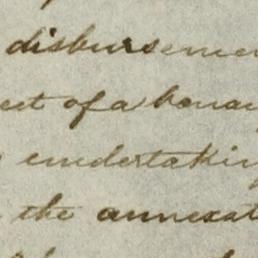 disburseme
ect of a bona
undertakin
the annexat